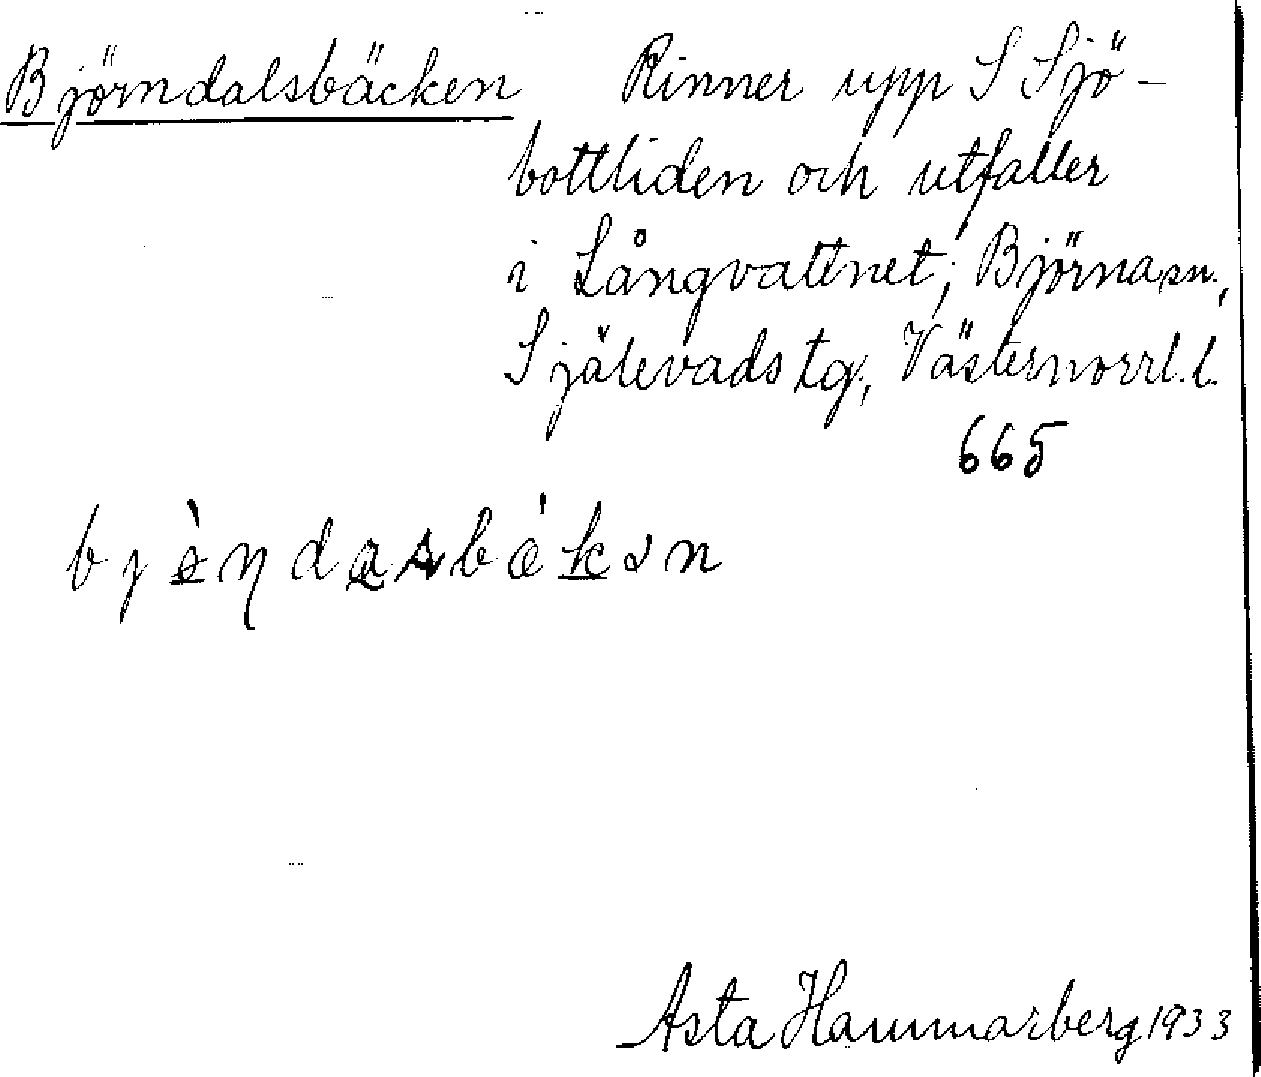 Björndalsbäcken Rinner upp S Sjö-
bottliden och utfaller
i Långvattnet, Björna sn.,
Själevads tg., Västernorrl. l.
665
Asta Hammarberg 1933